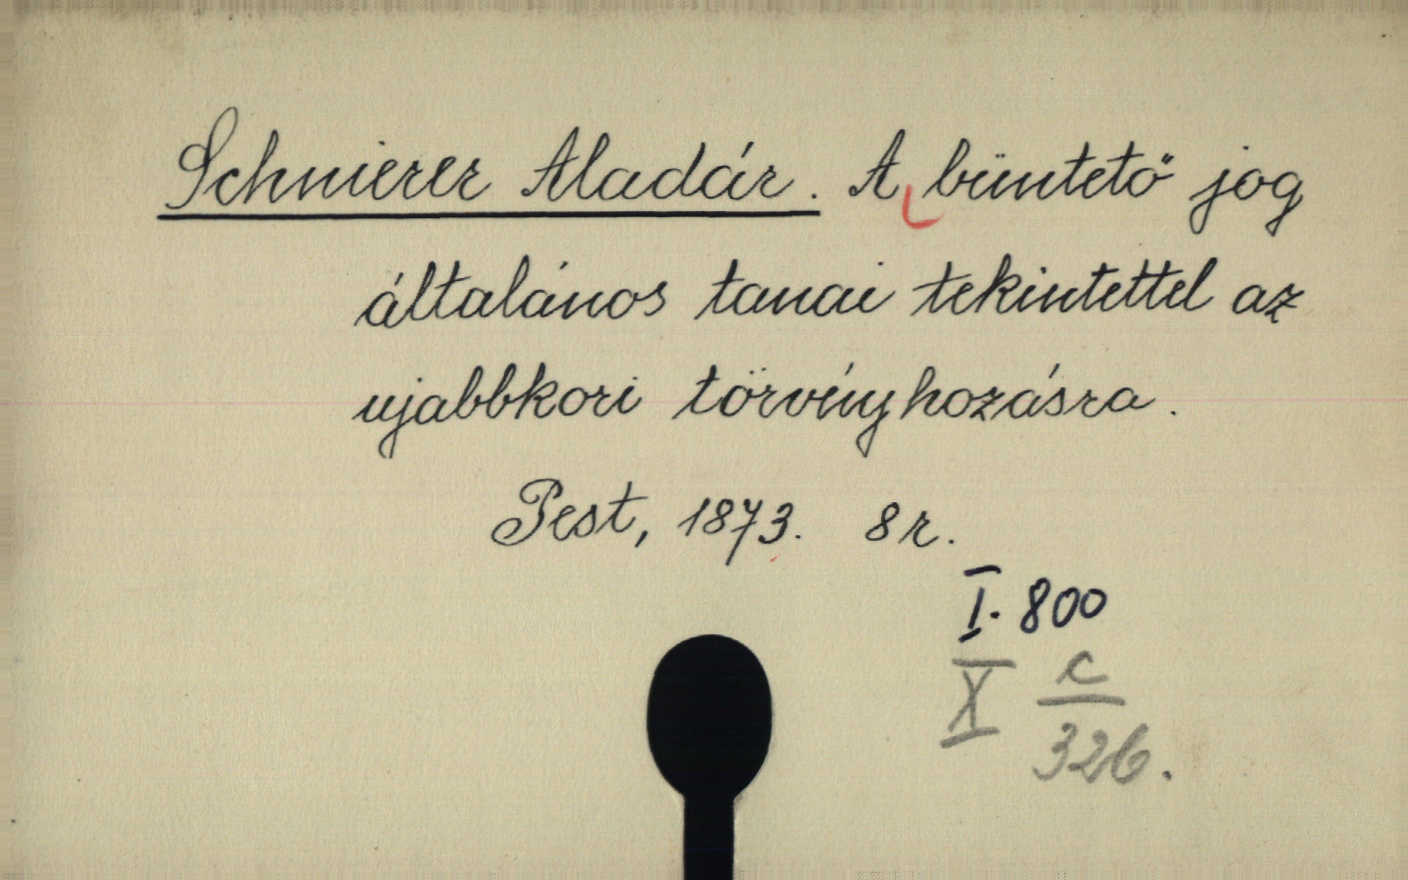 Schnierer Aladár. A büntető jog
általános tanai tekintettel az
ujabbkori törvényhozásra.
Pest, 1873. 8r.
I. 800
X c
326.